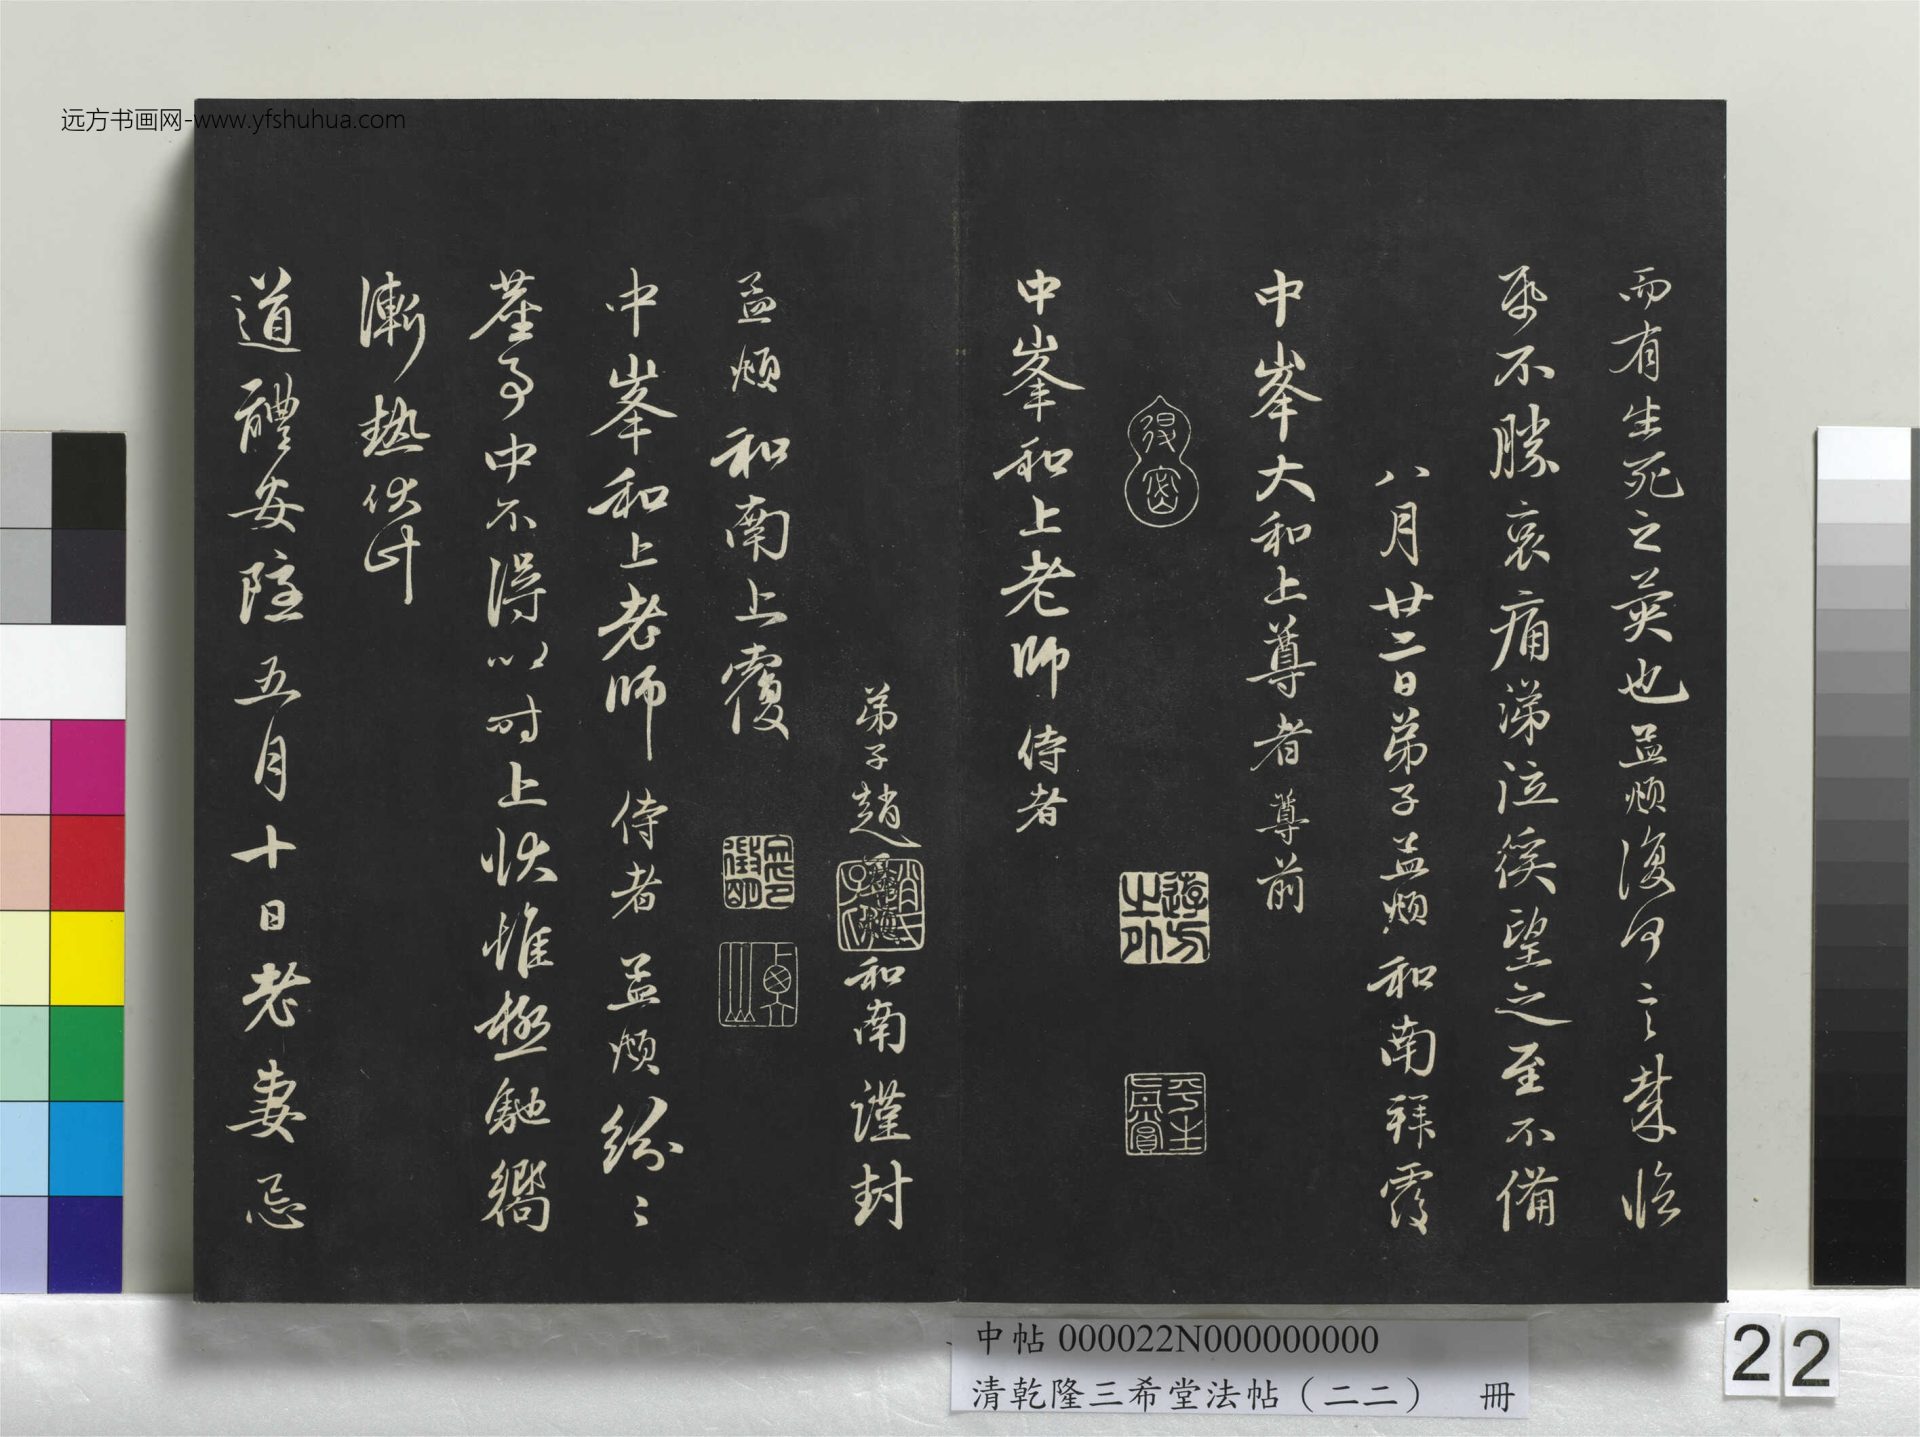 远方书画网-www.yfshuhua.com
而有生死之異也孟頫復何言槷臨
帋不勝哀痛涕泣徯望之至不備
八月廿二日弟子孟頫和南拜覆
中峯大和上尊者尊前
中峯和上老師侍者
弟子趙和南謹封
孟頫和南上覆
中峯和上老師侍者孟頫紛〻
塵事中不得以时上状惟極馳嚮
漸热伏計
道體安隱五月十日老妻忌
中帖 000022N000000000
清乾隆三希堂法帖（二二） 冊
22